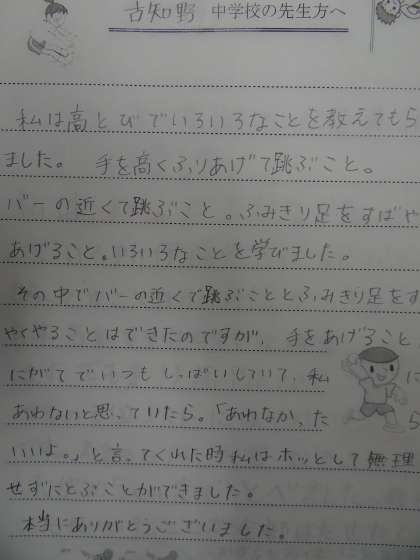 古知野 中学校の先生方へ
私は高とびでいろいろなことを教えてもら
ました。 手を高くふりあげて跳ぶこと。
バーの近くて跳ぶこと。ふみきり足をすばや
あげること。いろいろなことを学びました。
その中でバーの近くで跳ぶこととふみきり足をす
やくやることはできたのですが、手をあげること
にがてでいつもしっぱいしていて、私 に
あわないと思っていたら。「あわなかったら
いいよ。」と言ってくれた時私はホッとして無理
せずにとぶことができました。
本当にありがとうございました。